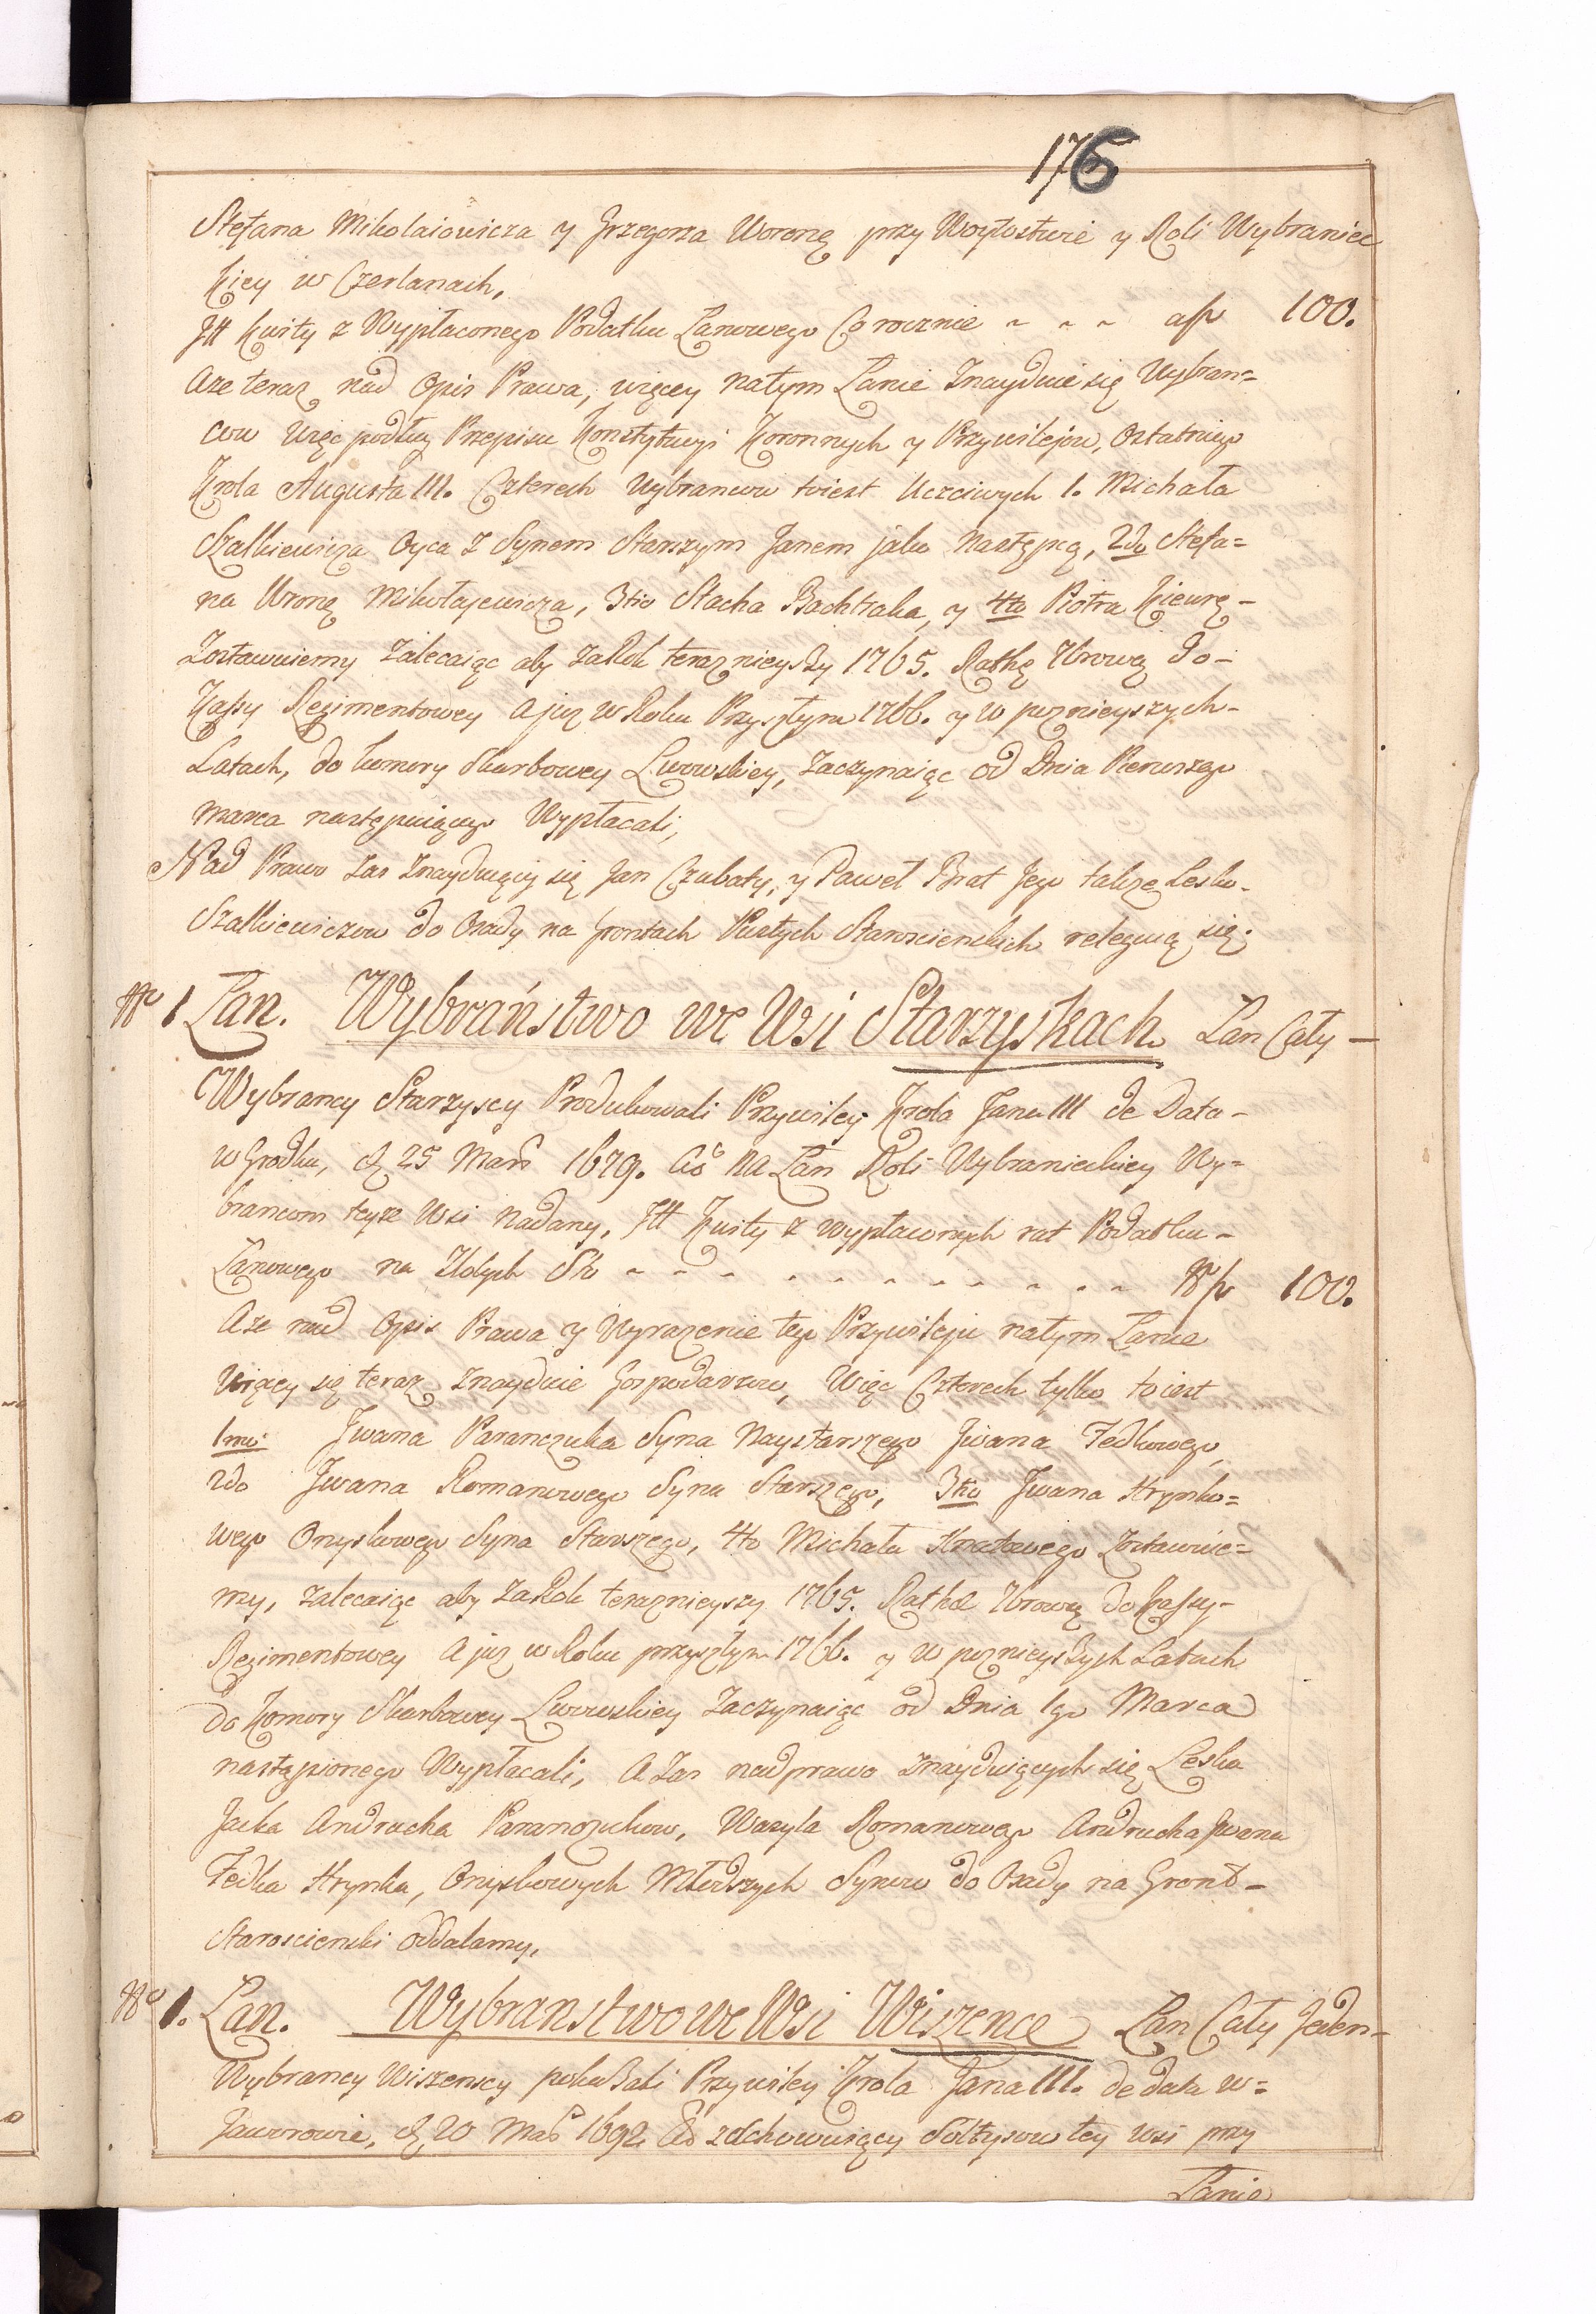 176
Stefana Mikolaiowicza y Grzegorza Woronę przy Woytostwie y Roli Wybraniec
kiey w Czerlanach,
Itt kwity z Wypłaconego Podatku Łanowego Co rocznie - - - a fl 100.
Aze teraz nad Opis Prawa, więcey natym Łanie Znayduie się Wybran=
cow Więc podług Przepisu Konstytucyi Koronnych y Przywilejow, Ostatniego
Krola Augusta III. Czterech Wybrancow toiest Uczciwych 1. Michała
Szalkiewicza Oyca z Synem Starszym Janem jako Następcą, 2do Stefa=
na Wronę Mikołajewicza, 3tio Stacha Bachtaka, y 4to Piotra Kiewrę -
Zostawuiemy Zalecaiąc aby zaRok teraznieyszy 1765. Rathę 7brową do-
Kassy Regimentowey a juz w Roku Przyszłym 1766. y w poznieyszych-
Latach, do komory Skarbowey Lwowskiey, Zaczynaiąc od Dnia Pierwszego
Marca następuiącego Wypłacali,
Nad Prawo zas Znayduiący się Jan Czubaty, y Paweł Brat Jego takze Lesko-
Szalkiewiczow do Osady na Grontach Pustych Staroscienskich releguią się.
Nro 1 Łan. Wybraństwo we Wsi Starzyskach. Łan Cały -
Wybrancy Starzyscy Produkowali Przywiley Krola Jana III de Data-
w Grodku, d 25 Mars 1679. Ao na Łan Roli Wybranieckiey Wy=
brancom teyze Wsi nadany, Itt Kwity z wypłaconych rat Podatku-
Łanowego na Złotych Sto - - - - - - - - - - - - fl 100.
Aze nad Opis Prawa y Wyrazenie tego Przywileju natym Łanie
Więcey się teraz znayduie Gospodarzow, Więc Czterech tylko toiest
1mo Jwana Paranczuka Syna Naystarszego Jwana Fedkowego,
2do Jwana Romanowego Syna Starszego, 3tio Jwana Hrynko=
wego Onyskowego Syna Starszego, 4to Michała Hnatowego Zostawuie=
my, zalecaiąc aby zaRok teraznieyszy 1765. Rathę 7brową do Kassy-
Regimentowey a juz w Roku przyszłym 1766. y w poznieyszych Latach
do Komory Skarbowey Lwowskiey Zaczynaiąc od Dnia 1go Marca
nastąpionego Wypłacali, a zas nad prawo znayduiących się Leska
Jacka Andrucha Paranczukow, Wasyla Romanowego Andrucha Jwana
Fedka Hrynka, Onyskowych Młodszych Synow do Osady na Gront-
Staroscienski oddalamy,
Nro 1. Łan. Wybranstwo we Wsi Wiszence Łan Cały Jeden-
Wybrancy Wiszenscy pokazali Przywiley Krola Jana III. de data w=
Jaworowie, d 20 1692 zachowuiący Sołtysow tey wsi przy
Łanie